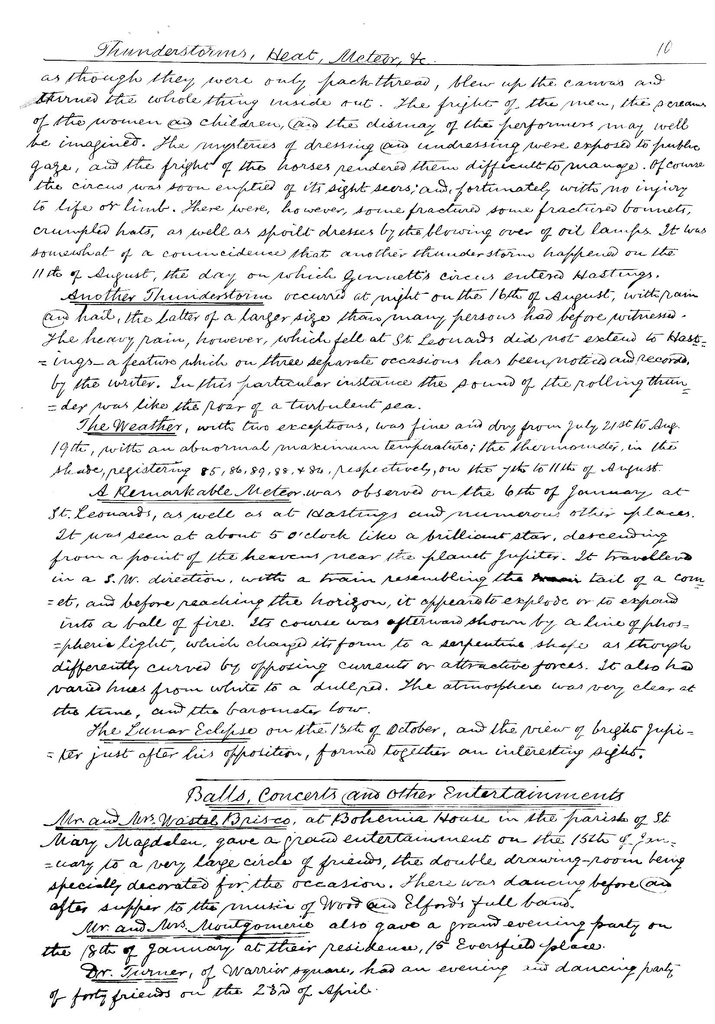 Thunderstorms, Heat, Meteor, &c. 10
as though they were only pack-thread, blew up the canvas and
turned the whole thing inside out. The fright of the men, the screams
of the women and children, and the dismay of the performers may well
be imagined. The mysteries of dressing and undressing were exposed to public
gaze, and the fright of the horses rendered them difficult to manage. Of course
the circus was soon emptied of its sight seers; and, fortunately with no injury
to life or limb. There were, however, some fractured some fractured bonnets,
crumpled hats, as well as spoilt dresses by the blowing over of oil lamps. It was
somewhat of a counincidence that another thunderstorm happened on the
11th of August, the day on which Ginnett's circus entered Hastings.
Another Thunderstorm occurred at night on the 16th of August, with rain
and hail, the latter of a larger size than many persons had before witnessed.
The heavy rain, however, which fell at St. Leonards did not extend to Hast-
=ings - a feature which on three separate occasions has been noticed and recorded
by the writer. In this particular instance the sound of the rolling thun=
=der was like the roar of a turbulent sea.
The Weather, with two exceptions, was fine and dry from July 21st to Aug.
19th, with an abnormal maximum temperature; the thermometer, in the
shade, registering 85, 86, 89, 88, & 84, respectively, on the 7th to 11th of August
A Remarkable Meteor was observed on the 6th of January at
St. Leonards, as well as at Hastings and numerous other places.
It was seen at about 5 o'clock like a brilliant star, descending
from a point of the heavens near the planet Jupiter. It travelled
in a S.W. direction, with a train resembling the tail of a com=
=et, and before reaching the horizon, it appeared to explode or to expand
into a ball of fire. Its course was afterward shown by a line of phos=
=pheric light, which changed its form to a serpentine shape as though
differently curved by opposing currents or attractive forces. It also had
varied hues from white to a dull red. The atmosphere was very clear at
the time, and the barometer low.
The Lunar Eclipse on the 13th of October, and the view of bright Jupi=
=ter just after his opposition, formed together an interesting sight.
Balls, Concerts and Other Entertainments
Mr. and Mrs. Wastel Brisco, at Bohemia House in the parish of St
Mary Magdalen, gave a grand entertainment on the 15th of Jan=
=uary to a very large circle of friends, the double drawing-room being
specially decorated for the occasion. There was dancing before and
after supper to the music of Wood and Elford's full band.
Mr. and Mrs. Montgomerie also gave a grand evening party on
the 18th of January at their residence, 15 Eversfield place.
Dr. Turner, of Warrior square, had an evening dancing party
of forty friends on the 23rd of April.